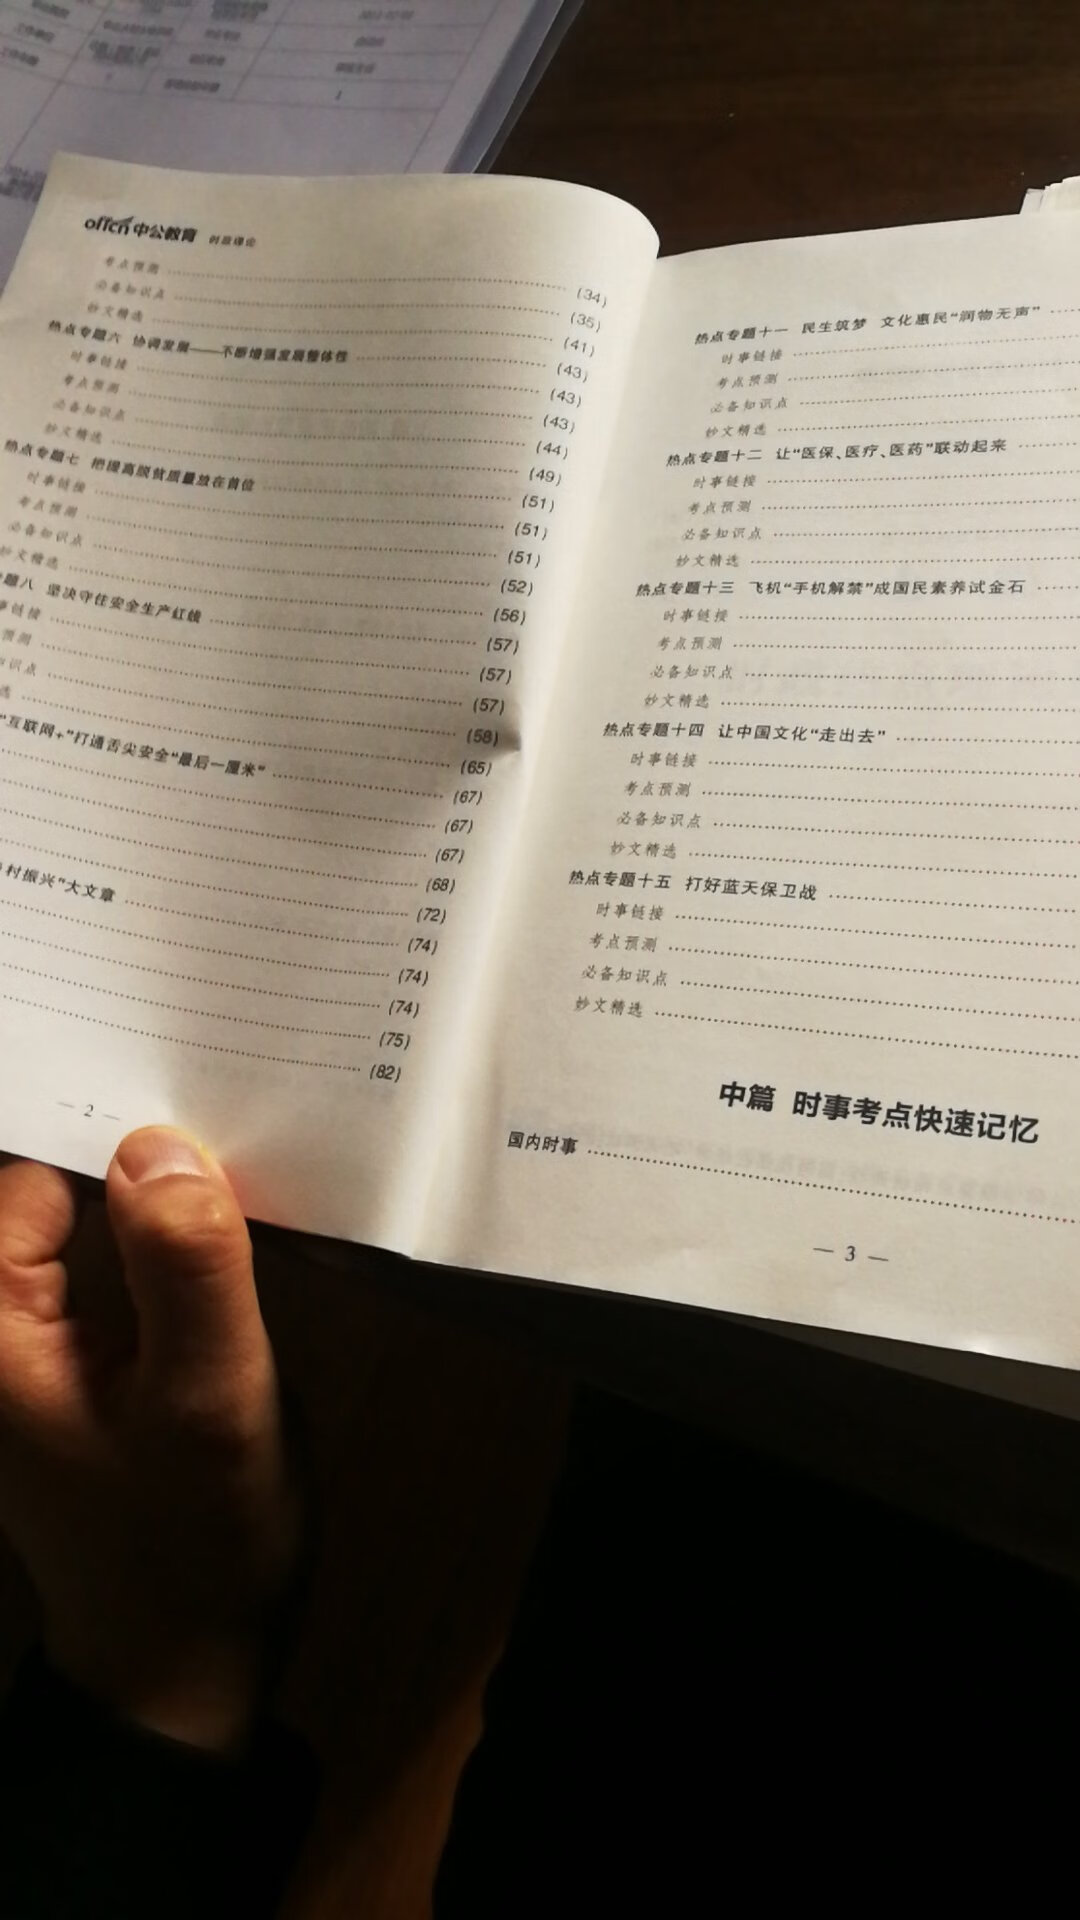 offcn中公教育 时政理论
考点预测 (34)
必备知识点 (35)
妙文精选 (41)
热点专题六 协调发展——不断增强发展整体性 (43)
时事链接 (43)
考点预测 (43)
必备知识点 (44)
妙文精选 (49)
热点专题七 把提高脱贫质量放在首位 (51)
时事链接 (51)
考点预测 (51)
必备知识点 (52)
妙文精选 (56)
题八 坚决守住安全生产红线 (57)
事链接 (57)
预测 (57)
识点 (58)
选 (65)
"互联网+"打通舌尖安全"最后一厘米" (67)
(67)
(67)
(68)
(72)
村振兴"大文章 (74)
(74)
(74)
(75)
(82)
— 2 —
热点专题十一 民生筑梦 文化惠民"润物无声"
时事链接
考点预测
必备知识点
妙文精选
热点专题十二 让"医保、医疗、医药"联动起来
时事链接
考点预测
必备知识点
妙文精选
热点专题十三 飞机"手机解禁"成国民素养试金石
时事链接
考点预测
必备知识点
妙文精选
热点专题十四 让中国文化"走出去"
时事链接
考点预测
必备知识点
妙文精选
热点专题十五 打好蓝天保卫战
时事链接
考点预测
必备知识点
妙文精选
中篇 时事考点快速记忆
国内时事
— 3 —